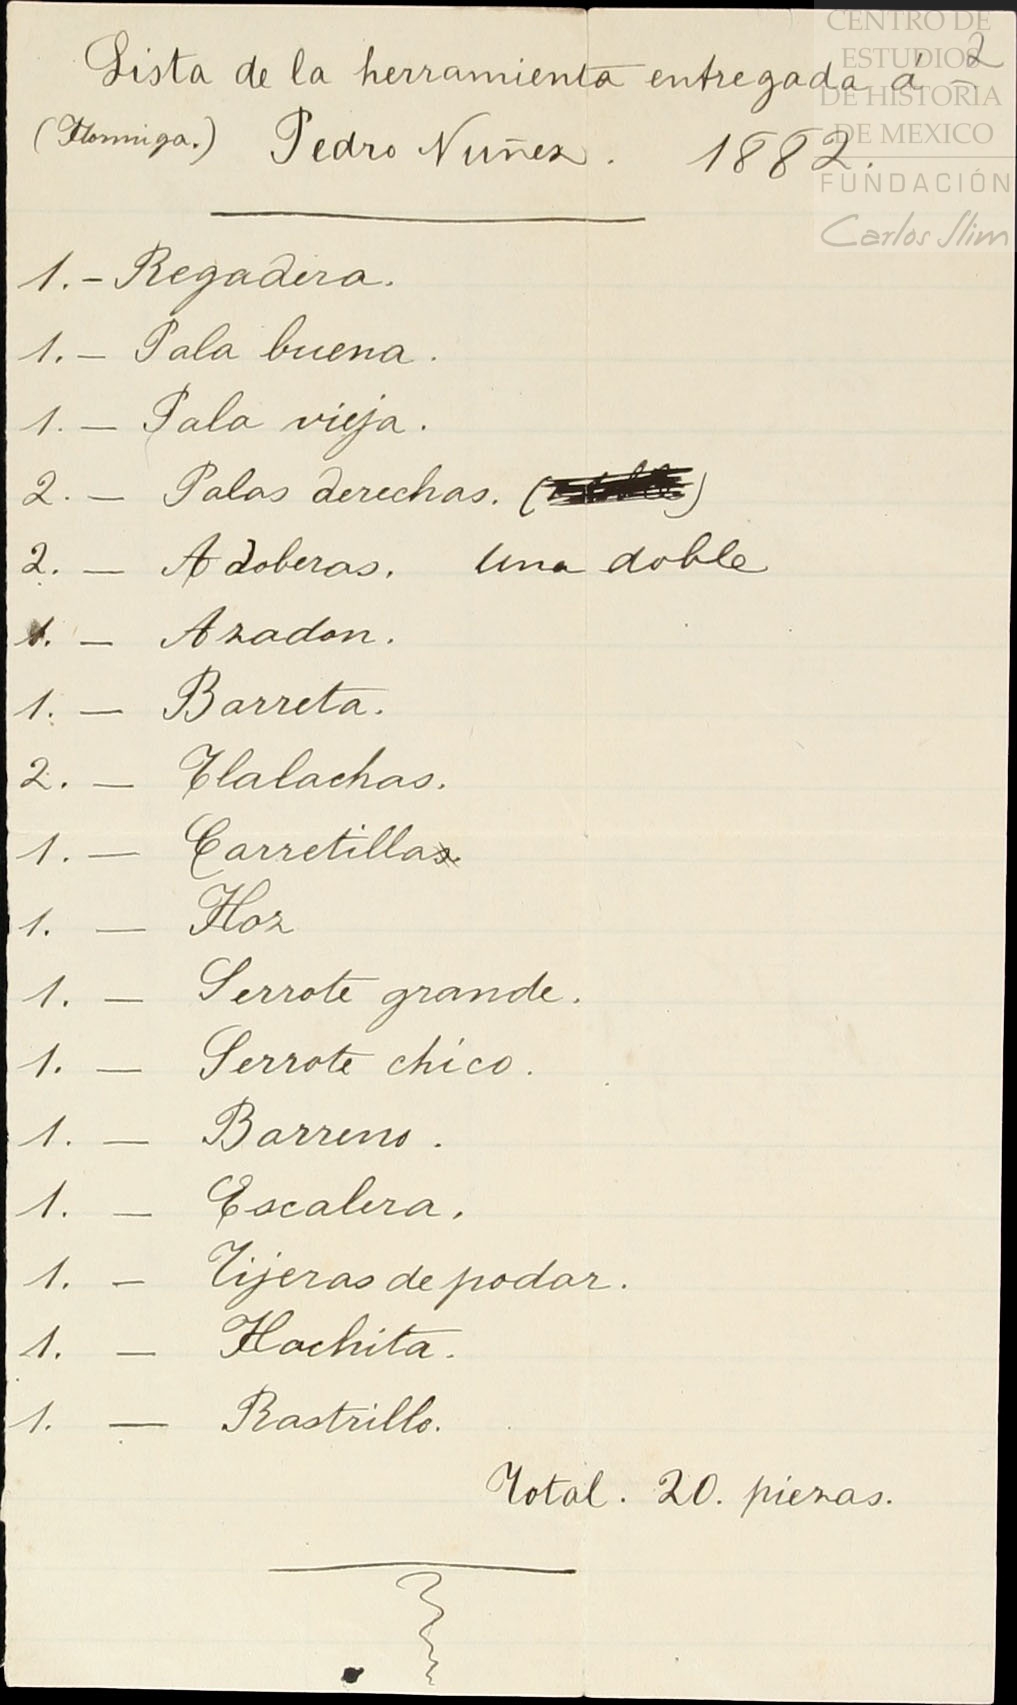 CENTRO DE
ESTUDIOS
DE HISTORIA
DE MEXICO
FUNDACIÓN
Carlos Slim
2
Lista de la herramienta entregada á
(Hormiga.) Pedro Nuñez. 1882.
1. - Regadera.
1. - Pala buena.
1. - Pala vieja.
2. - Palas derechas. ( )
2. - Adoberas. una doble
1. - Azadon.
1. - Barreta.
2. - Tlalachas.
1. - Carretilla
1. - Hoz
1. - Serrote grande.
1. - Serrote chico.
1. - Barreno.
1. - Escalera.
1. - Tijeras de podar.
1. - Hachita.
1. - Rastrillo.
Total. 20. piezas.